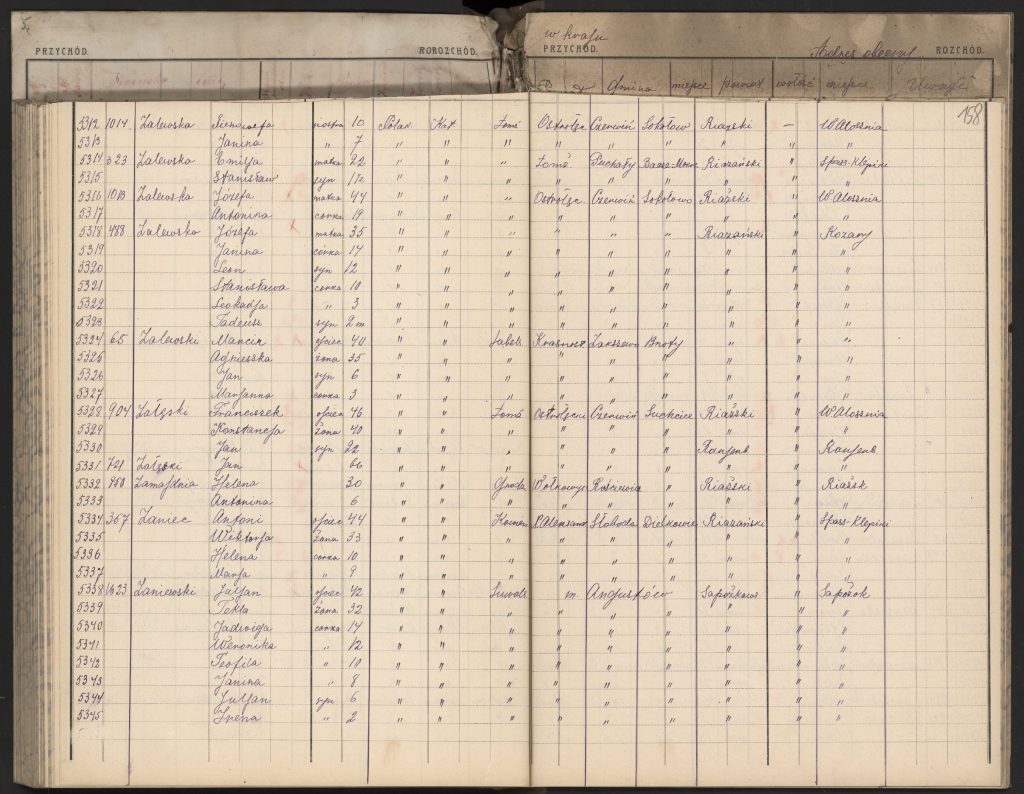 PRZYCHÓD. ROROZCHÓD. w kraju PRZYCHÓD. Adres obecny ROZCHÓD.
Gmina miejsce powiat wołość miejsce Uwagi
158
5312 1014 Zalewska Genowefa siostra 10 Polak Kat Łomż Ostrołęc Czerwiń Sokołowo Riażski — W Alosznia
5313 Janina " 7 " " " " " " " " "
5314 323 Zalewska Emilja matka 22 " " " Łomż Puchały Riazański " Spass-Klepiki
5315 Stanisław syn " " " " " " " " "
5316 1013 Zalewska Józefa matka 44 " " " Ostrołęc. Czerwiń Sokołowo Riażski " W Alosznia
5317 Antonina córka 19 " " " " " " " " "
5318 488 Zalewska Józefa matka 35 " " " " " " Riazański " Kozary
5319 Janina córka 14 " " " " " " " " "
5320 Leon syn 12 " " " " " " " " "
5321 Stanisława córka 10 " " " " " " " " "
5322 Leokadja " 3 " " " " " " " " "
5323 Tadeusz syn 2 m " " " " " " " " "
5324 65 Zalewski Marcin ojciec 40 " " Łubels Krasnost Zakrzewo Broty " " "
5325 Agnieszka żona 35 " " " " " " " " "
5326 Jan syn 6 " " " " " " " " "
5327 Marjanna córka 3 " " " " " " " "
5328 904 Załęski Franciszek ojciec 46 " " Łomż Ostrołęcki Czerwiń Suchcice Riażski " W Alosznia
5329 Konstancja żona 40 " " " " " " " " "
5330 Jan syn 22 " " " " " " Ranjenb " Ranjenb
5331 721 Załęski Jan 66 " " " " " " " " "
5332 Zamajdnia Helena 30 " " Grodz Wołkowys Kościewia " Riażski " Riażsk
5333 Antonina 6 " " " " " " " " "
5334 367 Zaniec Antoni ojciec 44 " " Słoboda Riazański " Spass-Klepiki
5335 Wiktorja żona 33 " " " " " " " " "
5336 Helena córka 10 " " " " " " " " "
5337 Marja " 9 " " " " " " " " "
5338 1623 Zaniewski Juljan ojciec 42 " " Suwals m. Augustów Sapożkow " Sapożok
5339 Tekla żona 32 " " " " " " " " "
5340 Jadwiga córka 14 " " " " " " " " "
5341 Weronika " 12 " " " " " " " " "
5342 Teofila " 10 " " " " " " " " "
5343 Janina " 8 " " " " " " " " "
5344 Juljan syn 6 " " " " " " " " "
5345 Irena " 2 " " " " " " " " "